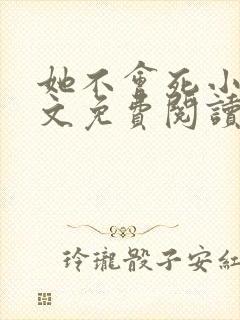 她不會死小
文免費閱讀
玲瓏骰子安紅